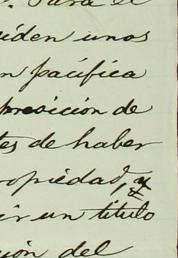 . Para el
iden unos
n pacífica
posición de
tes de haber
ropiedad, y
ir un título
ión del